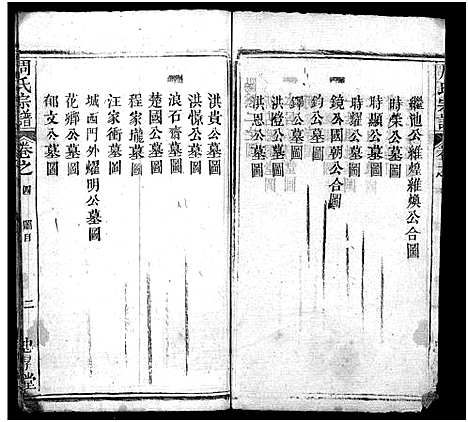 繼池公維煌維煥公合圖
時榮公墓圖
時顯公墓圖
時耀公墓圖
鏡公國朝公合圖
鈞公墓圖
鐸公墓圖
洪橙公墓圖
洪恩公墓圖
洪貴公墓圖
洪憬公墓圖
浪石齋墓圖
楚國公墓圖
程家壠墓圖
汪家衝墓圖
城西門外耀明公墓圖
花鄉公墓圖
郁文公墓圖
周氏宗譜
卷之四
圖目
二